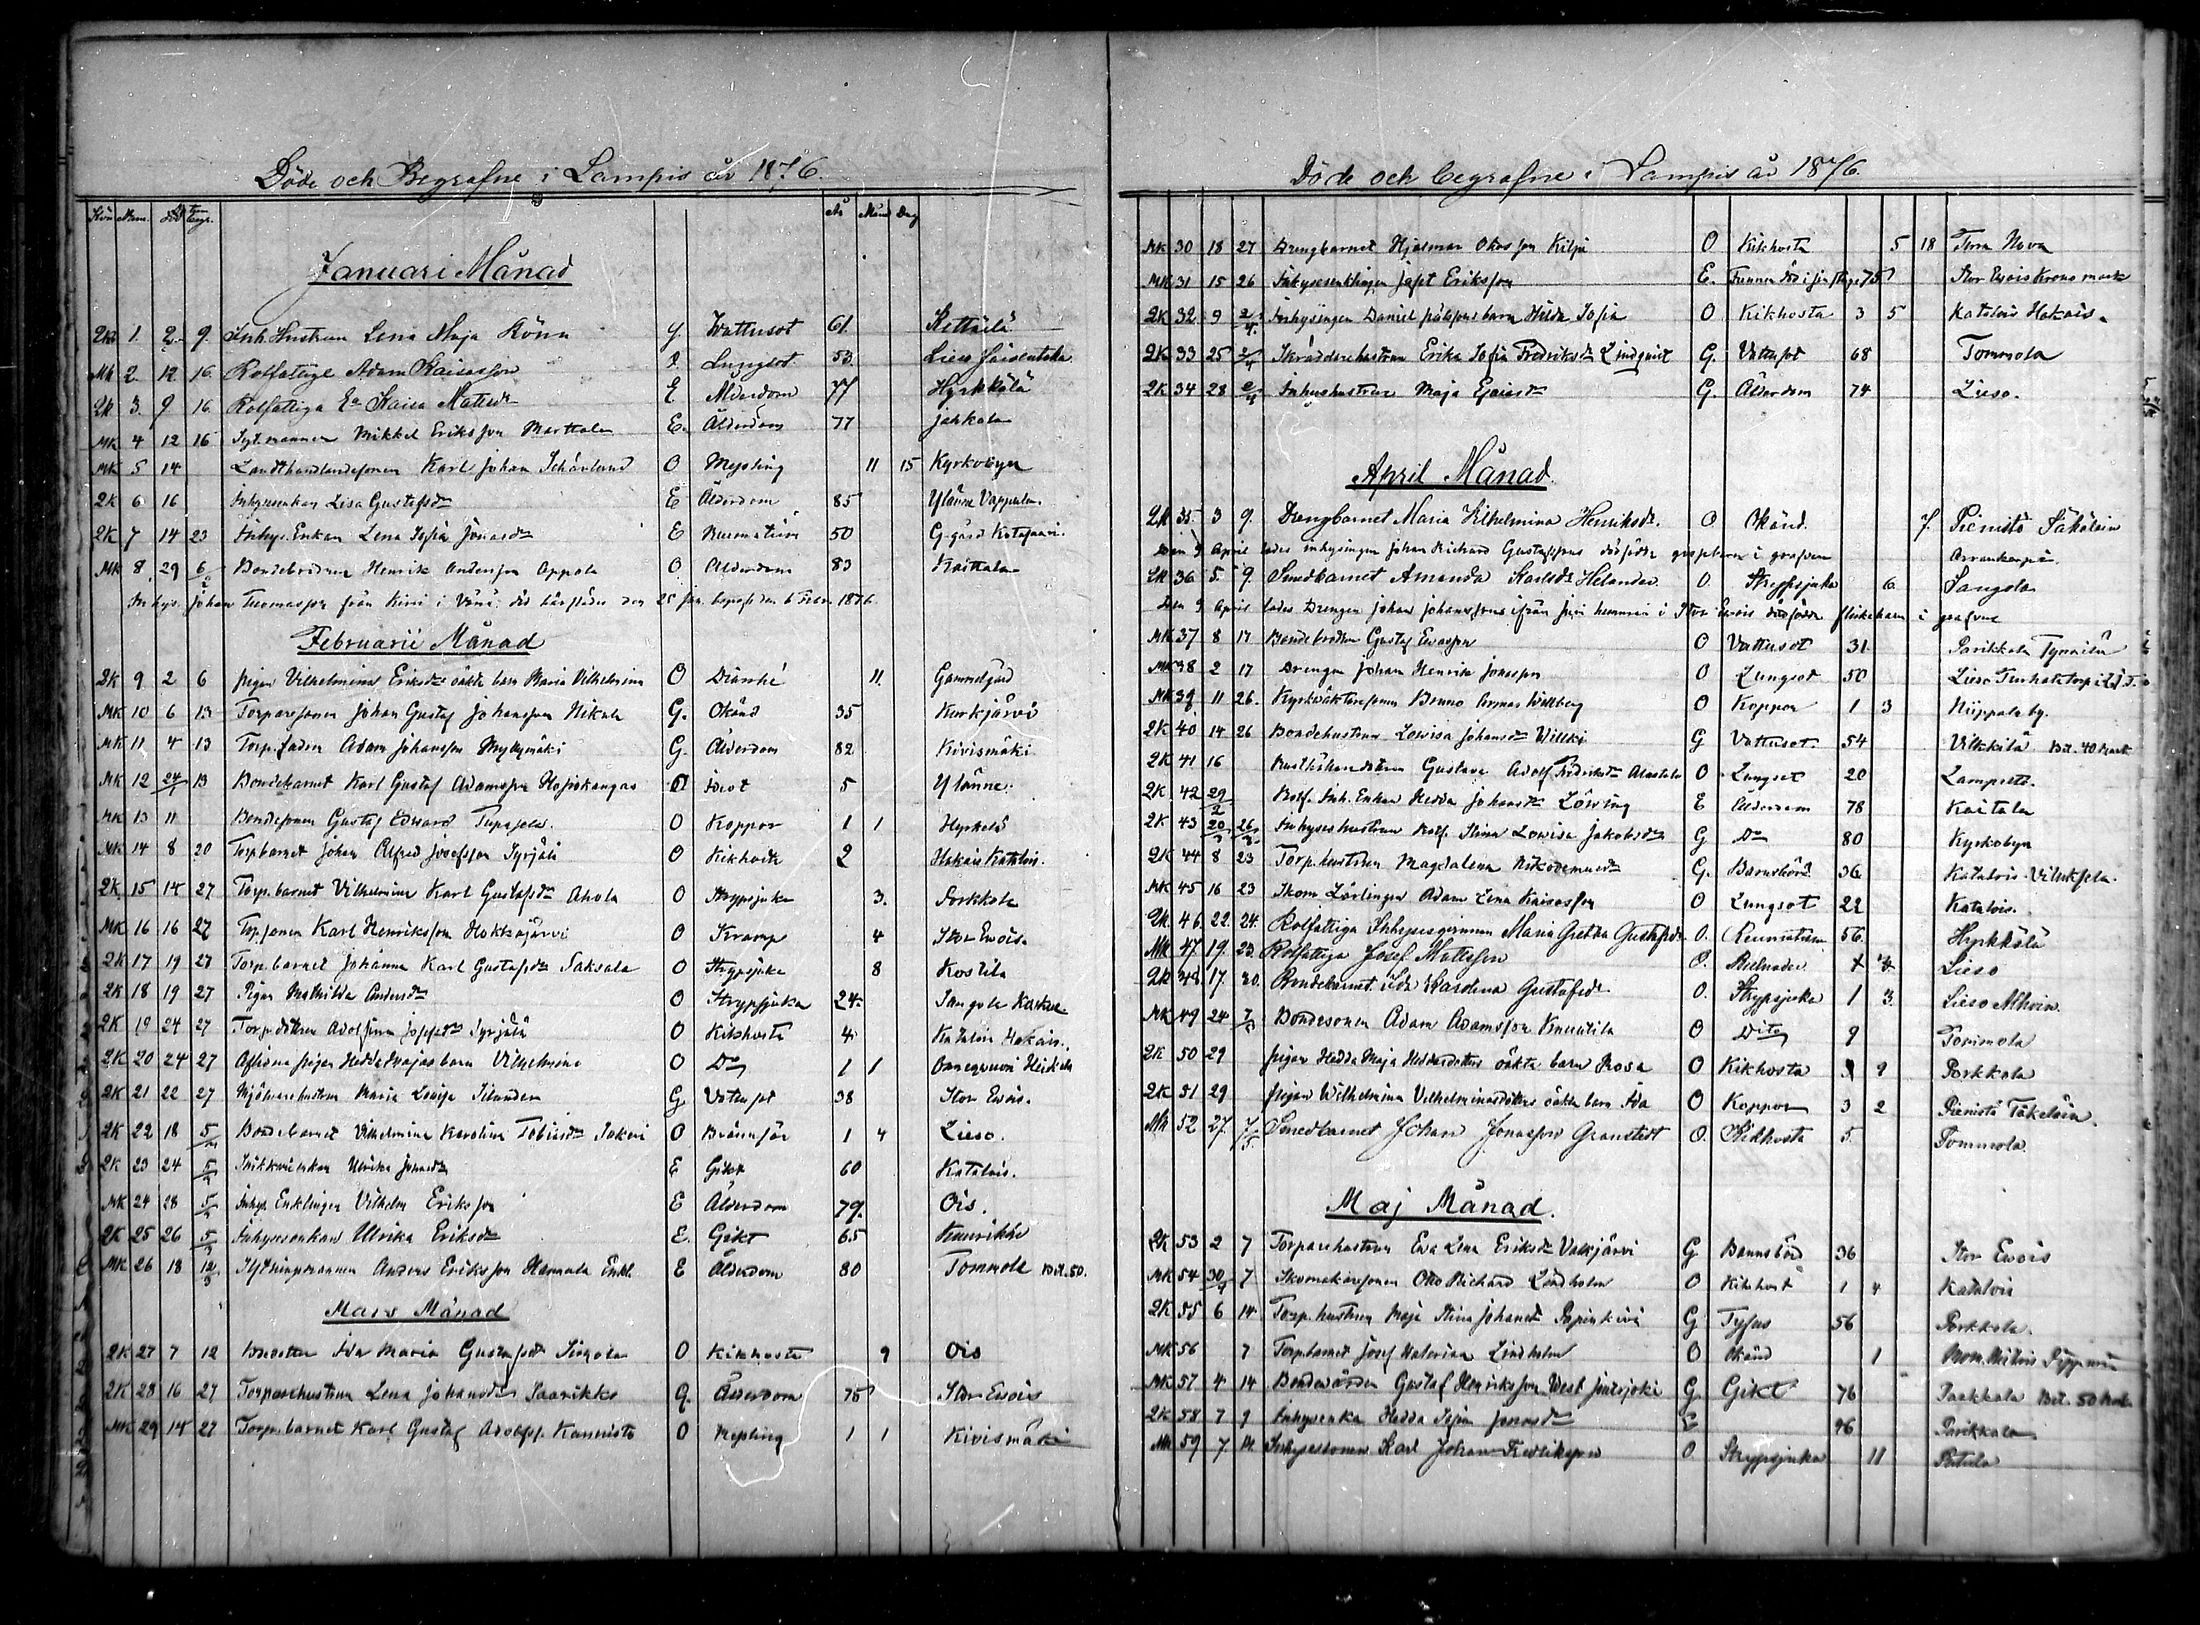 Döde och Begrafne i Lampis år 1876.
Kön Num. Död begr. År Mån Dag
Januari Månad
QK 1. 2. 9. Inh Hustrun Lena Maja G Wattusot 61. Kettälä
MK 2. 12 16. Rotfattige Adam Kaisasson Lungsot 53. Lieso
QK 3. 9 16. Rotfattiga Kaisa Matsdr E Ålderdom 77 Hyrkkälä
MK 4 12 16 Sytmannen Mikkel Eriksson Marttala E. Ålderdom 77 Jahkala
MK 5 14 Landthandlandesonen Karl Johan O Messling 11 15 Kyrkobyn
QK 6 16 Inhysenkan Lisa Gustafsdr E Ålderdom 85 Ylänne Vappula.
QK 7 14 23 Inhys. Enkan Lena Sofia Jonasdr E Reumatism 50 G-gård
MK 8 29 6/2 Bondebrodren Henrik Andersson Appola O Ålderdom 83 Kaittala
Inhys. Johan Thomasson från död härstädes den 25 Jan. begrafs den 6 Febr. 1876.
Februarii Månad
QK 9 2 6 pigan Vilhelmina Eriksdrs oäkta barn Maria Vilhelmina O Diarrhé 11. Gammelgård
MK 10 6 13 Torparesonen Johan Gustaf Johansson Nikula G. Okänd 35 Kurkjärvi
MK 11 4 13 Torp.fadren Adam Johansson Myllymäki G. Ålderdom 82 Kivismäki
MK 12 24/1 13 Bondebarnet Karl Gustaf Adamsson O 5 Ylänne.
MK 13 11 Bondesonen Gustaf Edvard O Koppor 1 1 Hyrkälä
MK 14 8 20 Torpbarnet Johan Alfred Josefsson Syrjälä O Kikhosta 2 Hakois Katalois.
QK 15 14 27 Torp.barnet Vilhelmina Karl Gustafsdr Ahola O Strypsjuka 3. Porkkola
MK 16 16 27 Torp.sonen Karl Henriksson Hokkajärvi O Kramp 4 Stor Ewois.
QK 17 19 27 Torp.barnet Johanna Karl Gustafsdr Taksala O Strypsjuka 8 Kostila
QK 18 19 27 Pigan Mathilda Andersdr O Strypsjuka 24 Sangola
QK 19 24 27 Torp.dottren Adolfina Josefsdr Syrjälä O Kikhosta 4 Katalois Hakois.
QK 20 24 27 Aflidna pigan Hedda Majas barn Vilhelmina O Do 1 1
QK 21 22 27 Mjölnarehustrun Maria Lovisa Silander G. Vattusot 38 Stor Ewois.
QK 22 18 5/3 Bondebarnet Vilhelmina Karolina Tobiasdr O Brännsår 1 4 Lieso.
QK 23 24 5/3 Ulrika Johansdr E Gikt 60 Katalois.
MK 24 28 5/3 Inhys. Enklingen Vilhelm Eriksson E Ålderdom 79. Ois.
QK 25 26 5/3 Inhysenkan Ulrika Eriksdr E. Gikt 65
MK 26 18 12/3 Sytningsmannen Anders Eriksson Hannula Enkl. E Ålderdom 80 Tommola Bet. 50.
Mars Månad
QK 27 7 12 Ida Maria Gustafsdr O Kikhosta 9 Ois
QK 28 16 27 Torparehustrun Lena Johansdr Saarikko G. Ålderdom 75 Stor Ewois
MK 29 14 27 Torp.barnet Karl Gustaf Adolfss. Kannisto O Messling 1 1 Kivismäki
Döde och begrafne i Lampis år 1876.
MK 30 18 27 Drengbarnet Hjalmar Otosson Kilpi O Kikhosta 5 18 Terra Nova
MK 31 15 26 Inhysesenklingen Josef Eriksson E. Funnen död i 75 Stor Ewois Krono mark
QK 32 9 2/4 Inhysingen Daniel barn Hilda Sofia O Kikhosta 3 5 Katalois Hakois.
QK 33 25 2/4 Skräddarehustrun Erika Sofia Fredriksdr Lindqvist G. Vattusot 68 Tommola
QK 34 28 2/4 Inhyshustrun Maja Esaiasdr G. Ålderdom 74 Lieso.
April Månad.
QK 35. 3 9. Drengbarnet Maria Vilhelmina Henriksdr. O Okänd. 7. Pienistö Täkälein
Den 9 April lades inhysingen Johan Richard Gustafssons dödfödda gossebarn i grafven
QK 36 5. 9. Smedbarnet Amanda Karlsdr Helander O Strypsjuka 6. Sangola
Den 9 April lades Drengen Johan Johanssons ifrån i Stor Ewois dödfödda flickebarn i grafven
MK 37 8 17 Bondebrodren Gustaf O Vattusot 31 Parikkala
MK 38 2 17 Drengen Johan Henrik Jonasson O Lungsot 50 Lieso
MK 39 11 26. Kyrkväktaresonen Bruno Armas O Koppor 1 3 by.
QK 40 14 26 Bondehustrun Lovisa Johansdr Willki G Vattusot. 54 Vilkkilä Bet. 40 mark
QK 41 16 Gustava Adolf Fredriksdr Alastalo O Lungsot 20 Lampistö.
QK 42 29/2 Rotf. Inh. Enkan Hedda Johansdr E Ålderdom 78 Kaitala
QK 43 20/3 26/3 Inhyseshustrun Rotf. Stina Lovisa Jakobsdr G Do 80 Kyrkobyn
QK 44 8 23 Torp.hustrun Magdalena Nikodemusdr G. Barnsbörd 36 Katalois
MK 45 16 23 Skom. Lärlingen Adam Lena Kaisasson O Lungsot 22 Katalois.
QK. 46 22. 24. Rotfattiga Inhysesqvinnan Maria Greta Gustafsdr O. Reumatism 56. Hyrkkälä
MK 47. 19. 23. Rotfattiga Josef Mattsson O. Lieso
QK 48. 17. 30. Bondebarnet Ida Karolina Gustafsdr O. Strypsjuka 1 3 Lieso
MK 49 24 7/5 Bondesonen Adam Adamsson Knuutila O Dito 9 Tommola
QK 50 29 pigan Hedda Maja oäkta barn Rosa O Kikhosta 9 Porkkola
QK 51 29 pigan Wilhelmina Vilhelminasdotters oäkta barn Ida O Koppor 3 2 Pienistö Täkelän.
MK 52 27. 7/5. Smedbarnet Johan Jonasson Granstedt O. Kikhosta 5. Tommola
Maj Månad.
QK 53 2 7 Torparehustrun Eva Lena Eriksdr Valkjärvi G Barnsbörd 36 Stor Ewois
MK 54 30/4 7 Skomakaresonen Otto Richard Lindholm O Kikhost 1 4 Katalois
QK 55 6 14 Torp.hustrun Maja Stina Johansdr G Tyfus 56 Porkkola.
MK 56 7 Torp.barnet Josef Lindholm O Okänd 1
MK 57 4 14 Bondevärden Gustaf Henriksson West G. Gikt 76 Bet. 50 mark
QK 58 7 9 Inhysenkan Hedda Sofia Jonasdr E 46 Parikkala
MK 59 7 14. Inhysessonen Karl Johan Fredriksson O Strypsjuka 11 Patula